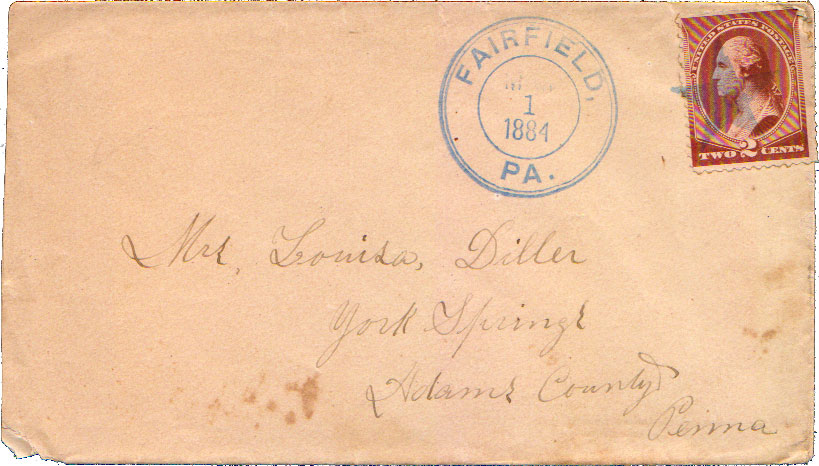 FAIRFIELD,
1
1884
PA.
UNITED STATES POSTAGE
TWO 2 CENTS
Mrs. Louisa, Diller
York Springs
Adams County
Penna